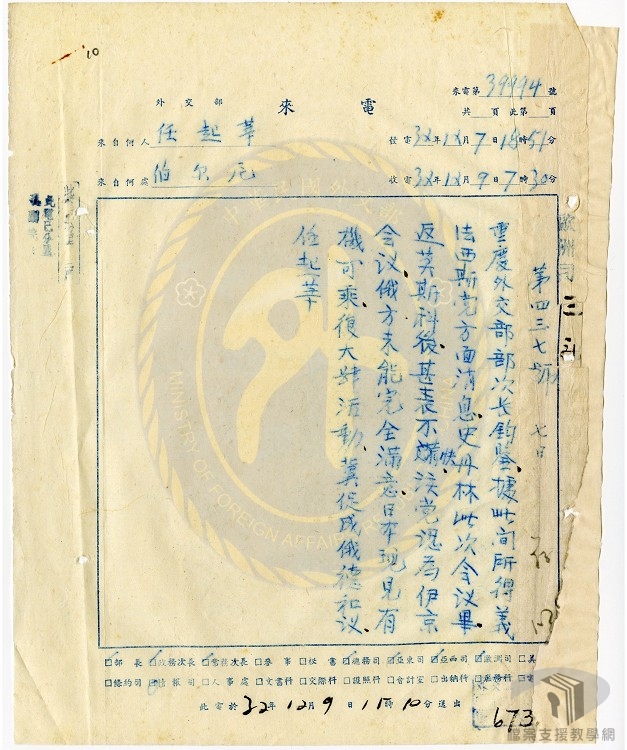 10
來電第39994號
外交部 來電
共 頁此第 頁
來自何人 任起莘
發電32年12月7日15時51分
來自何處 伯尔尼
收電32年12月9日7時30分
歐洲司
第四三七號 七日
重慶外交部部次长鈞鑒據此间所得義
法西斯党方面消息史丹林此次会议畢
返莫斯科後甚表不
快
渶党認為伊京
会议俄方未能完全滿意日本現見有
機可乘復大肆活動冀促成俄德和议
任起莘
MINISTRY OF FOREIGN AFFAIRS
部長 政務次長 常務次長 參事 秘書 總務司 亞東司 亞西司 歐洲司 美
條約司 情報司 人事處 文書科 交際科 護照科 會計室 出納科 庶務科
此電於32年12月9日15時10分送出
673
檔案支援教學網